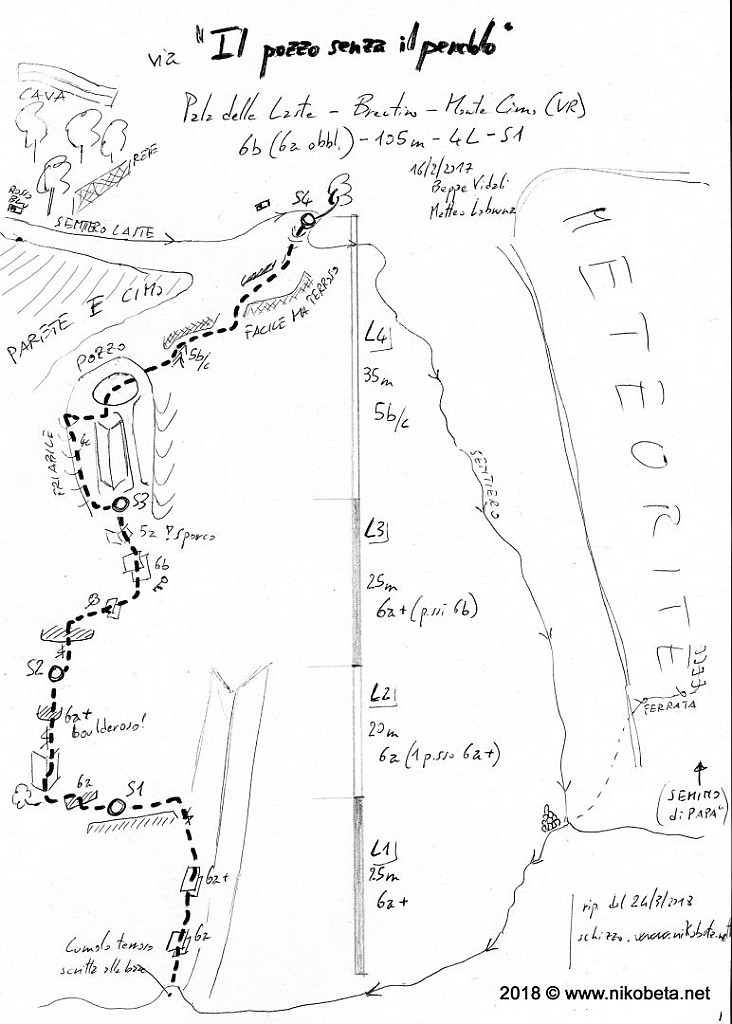 via "Il pozzo senza il pendolo"
CAVA
Pala delle Laste - Brentino - Monte Cimo (VR)
6b (6a obbl.) - 105m - 4L - S1
16/2/2017
Beppe Vidali
Matteo
RETE
ROSSO
BLU
SENTIERO LASTE
S4
METEORITE
PARETE E CIMO
FACILE MA TERROSO
POZZO
5b/c
L4
35m
5b/c
4c
FRIABILE
SENTIERO
S3
5a ! sporco
L3
6b
25m
6a+ (p.ssi 6b)
S2
L2
6a+
boulderoso!
20m
6a (1 p.sso 6a+)
3333
FERRATA
6a
S1
(SENTIERO
di PAPA')
L1
25m
6a+
6a+
6a
Cumolo terroso
scritta alla base
rip. del 24/3/2018
schizzo: www.nikobeta.net
2018 © www.nikobeta.net
1